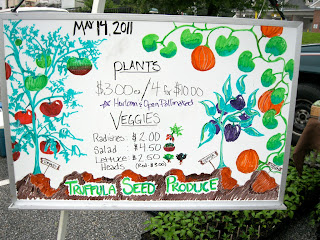 MAY 14, 2011
PLANTS
$3.00 ea/4 for $10.00
Heirloom & Open Pollinated
VEGGIES
Radishes $2.00
Salad $4.50
Lettuce $2.50
Heads
TRUFFULA SEED PRODUCE